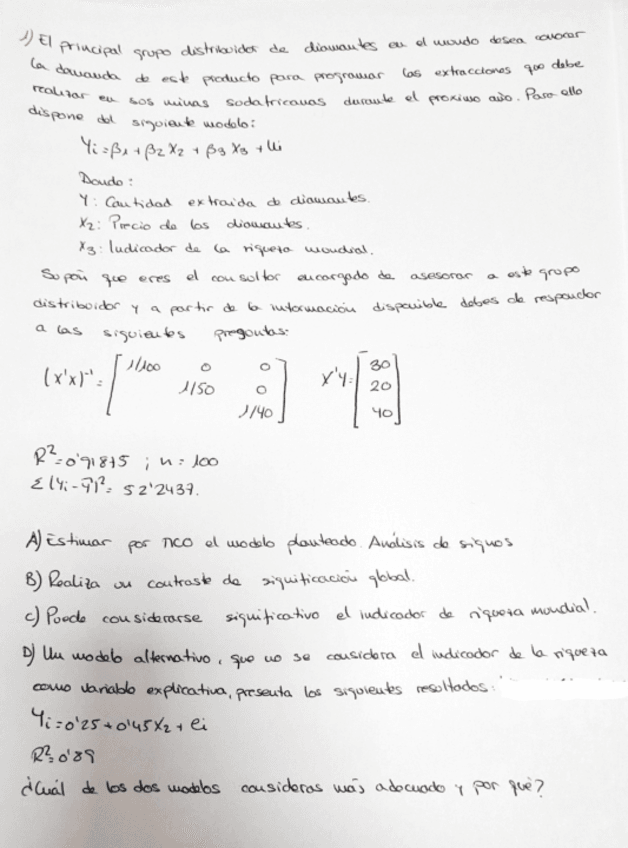 1) El principal grupo distribuidor de diamantes en el mundo desea conocer
la demanda de este producto para programar las extracciones que debe
realizar en sus minas sudafricanas durante el proximo año. Para ello
dispone del siguiente modelo:
Yi = β1 + β2 X2 + β3 X3 + Ui
Donde:
Y: Cantidad extraida de diamantes.
X2: Precio de los diamantes.
X3: Indicador de la riqueza mundial.
Supón que eres el consultor encargado de asesorar a este grupo
distribuidor y a partir de la información disponible debes de responder
a las siguientes preguntas:
(X'X)⁻¹ = [ 1/100 0 0 ; 1/50 0 ; 1/40 ] X'Y = [ 30 ; 20 ; 40 ]
R² = 0'91875 ; n = 100
Σ(Yi - Ȳ)² = 52'2437.
A) Estimar por MCO el modelo planteado. Análisis de signos
B) Realiza un contraste de significación global.
C) Puede considerarse significativo el indicador de riqueza mundial.
D) Un modelo alternativo, que no se considera el indicador de la riqueza
como variable explicativa, presenta los siguientes resultados:
Yi = 0'25 + 0'45 X2 + ei
R² = 0'89
¿Cuál de los dos modelos consideras más adecuado y por qué?